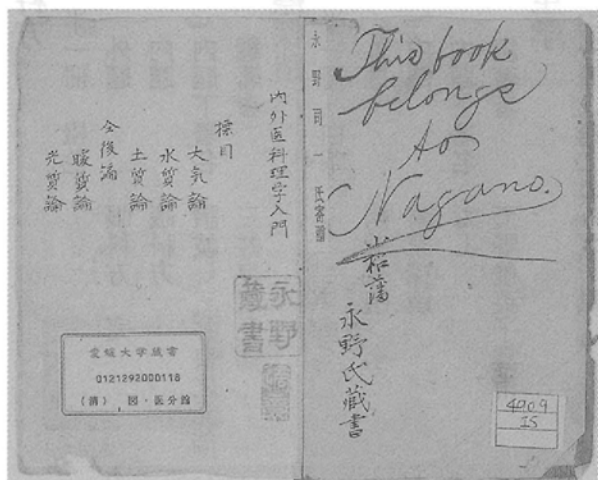 This book
belongs
to
Nagano.
小松藩
永野氏蔵書
490.9
IS
永野司一氏寄贈
内外医科理学入門
標目
大気論
水質論
土質論
後編
暖質論
光質論
永野
蔵書
愛媛大学蔵書
0121292000118
図・医分館